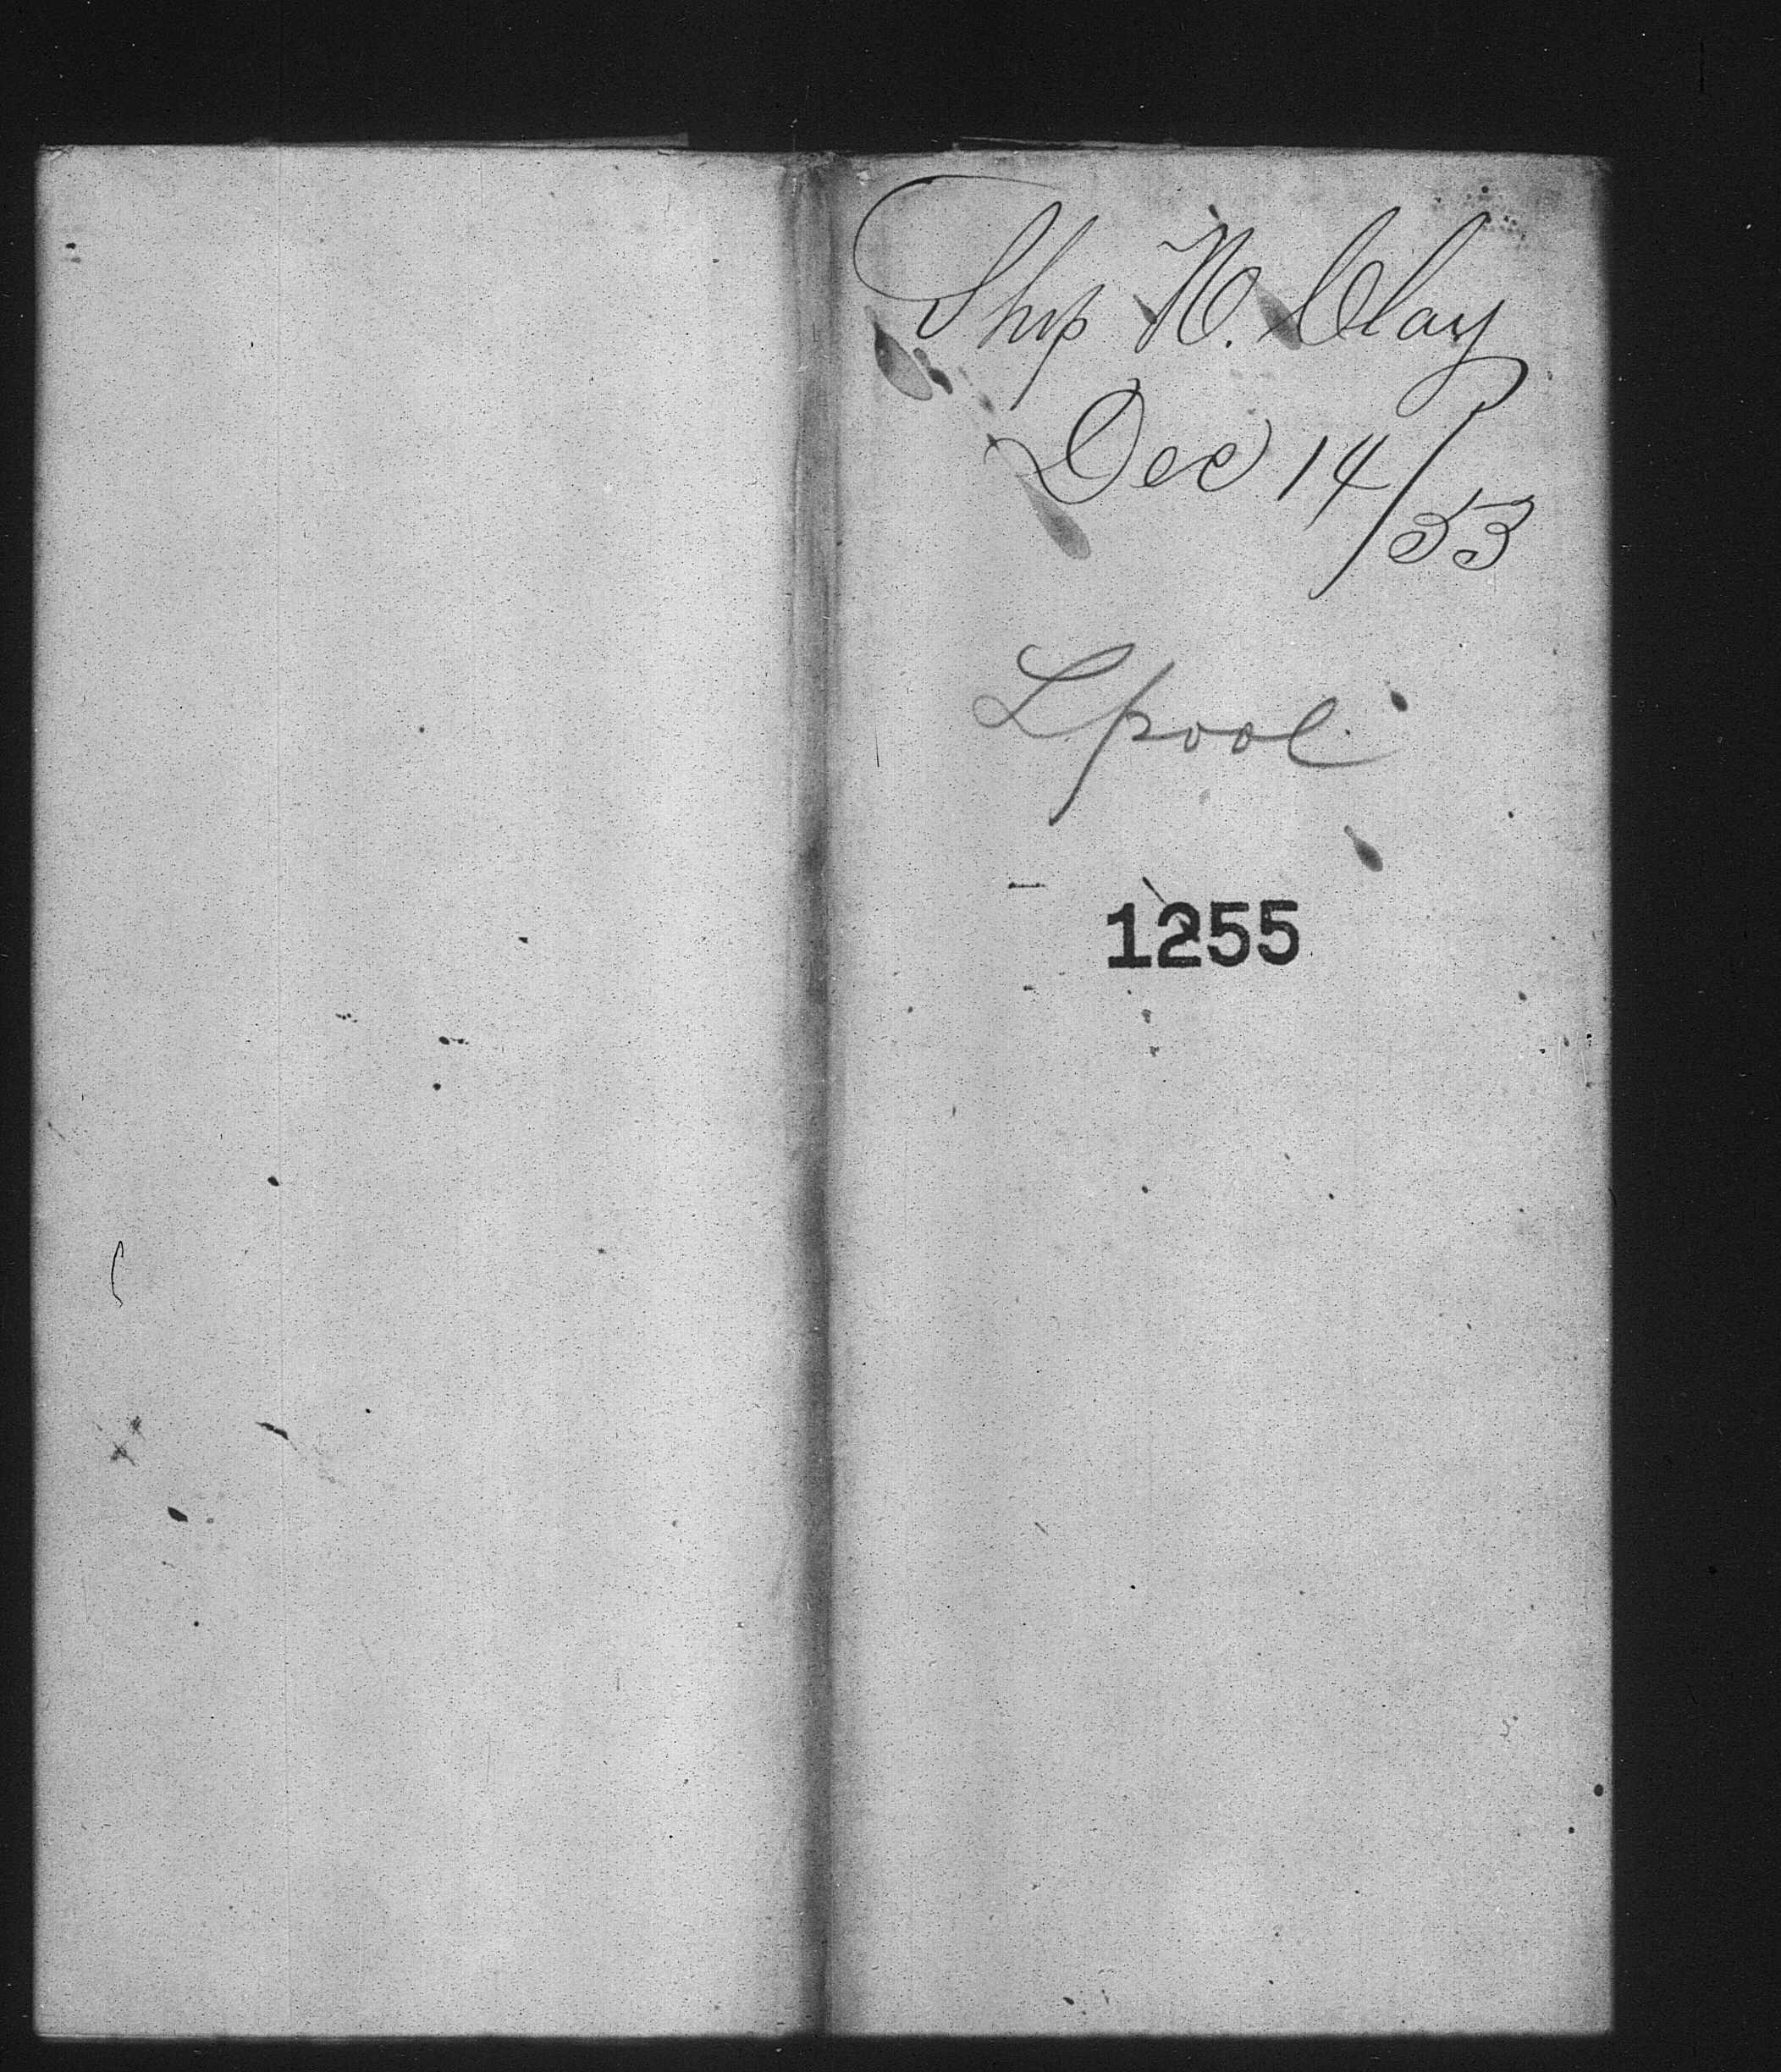 Ship H. Clay
Dec 14/53
Lpool
1255